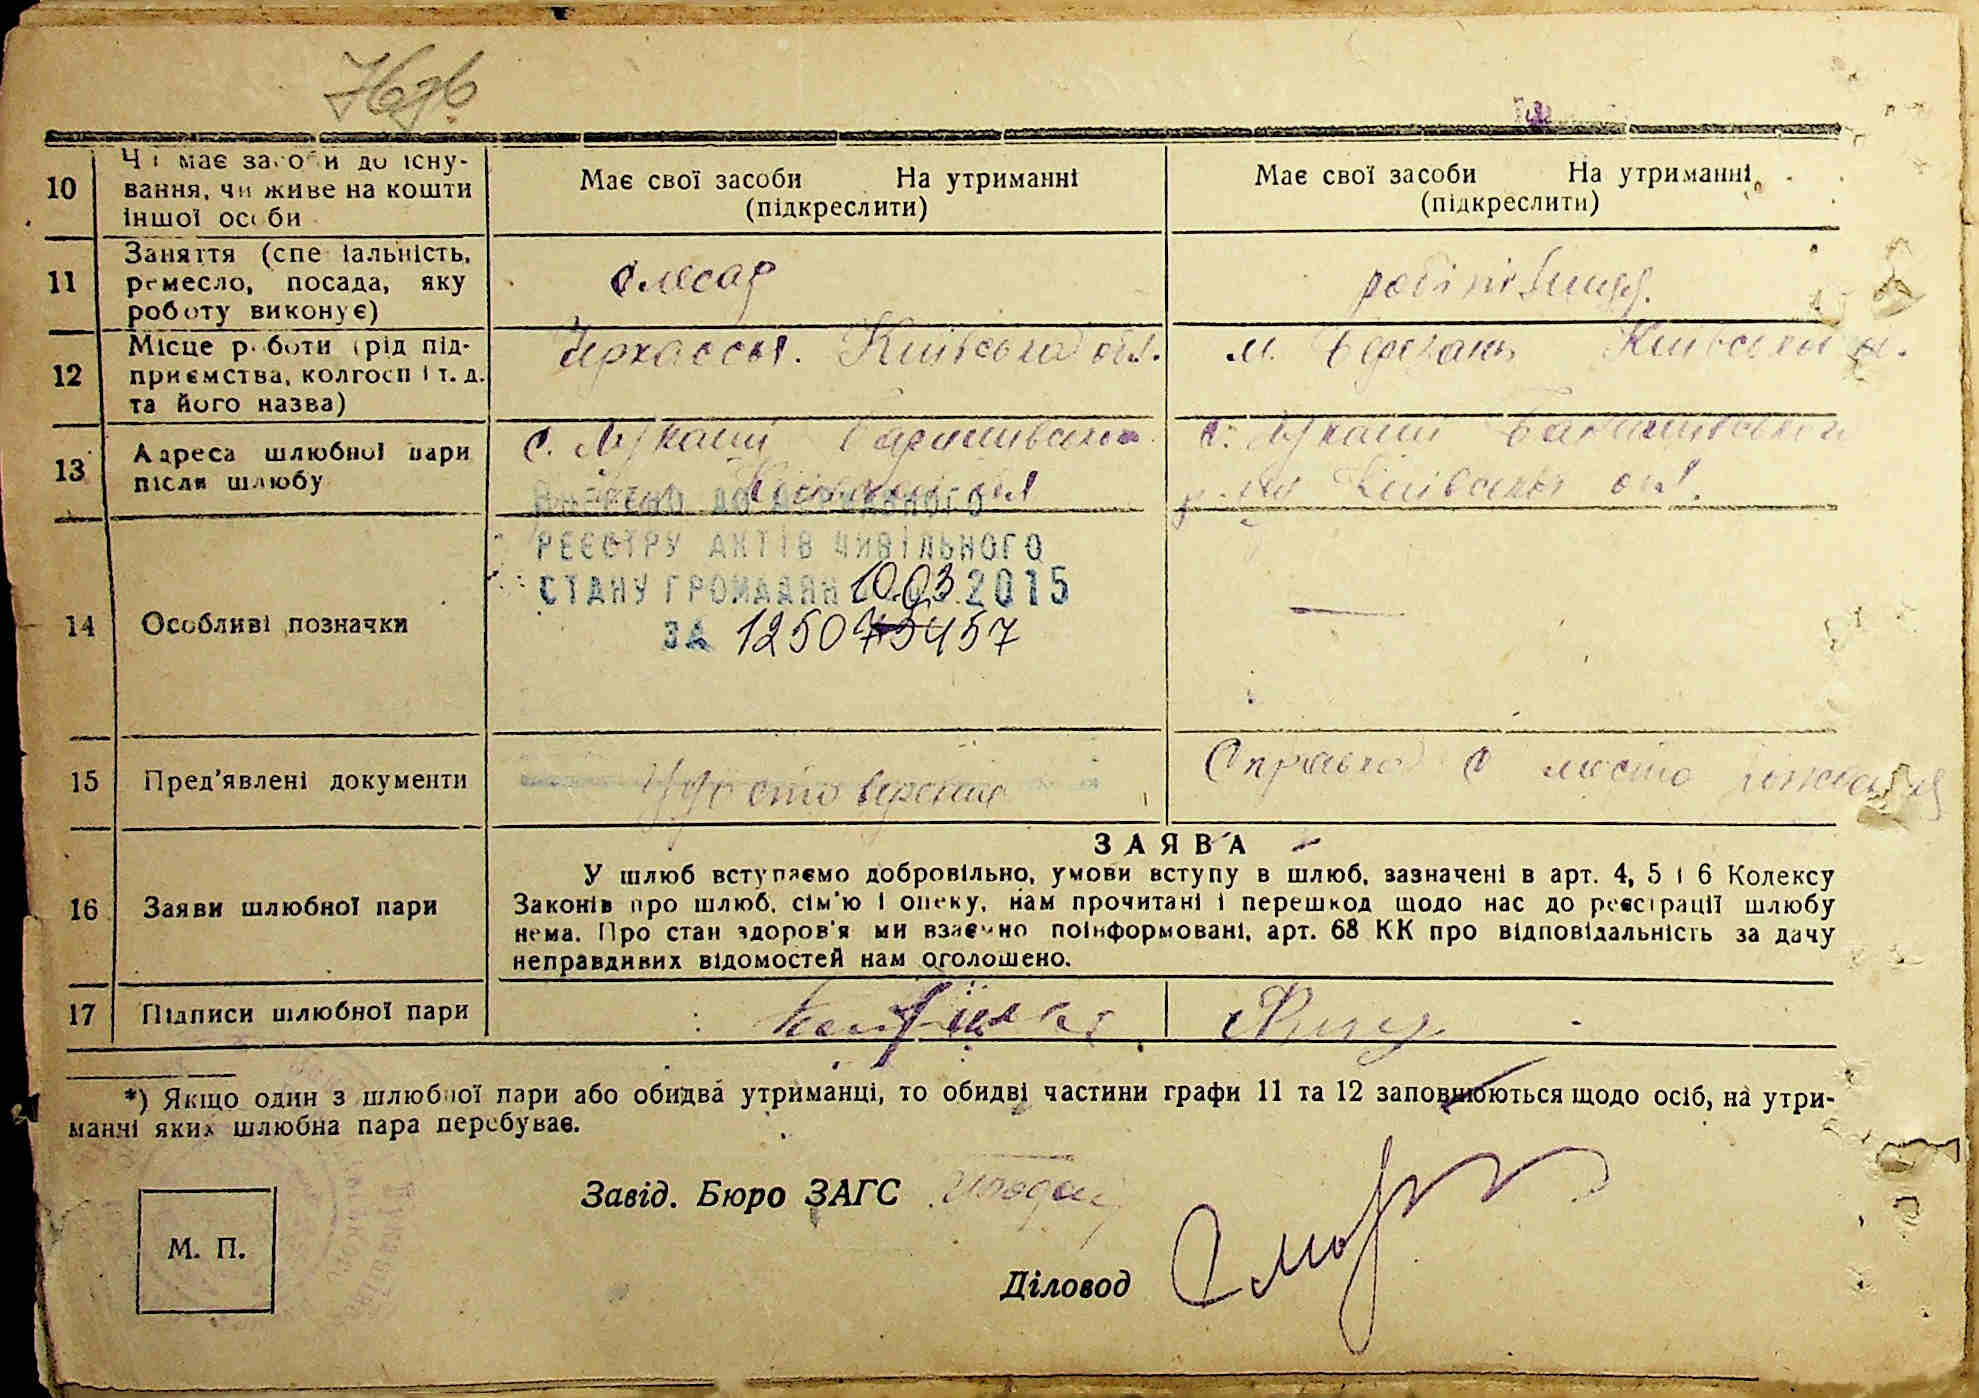 10
Чи має засоби до існу-
вання, чи живе на кошти
іншої особи
Має свої засоби На утриманні
(підкреслити)
Має свої засоби На утриманні
(підкреслити)
11
Заняття (спеціальність,
ремесло, посада, яку
роботу виконує)
слесар
робітниця
12
Місце роботи (рід під-
приємства, колгосп і т. д.
та його назва)
Черкассы. Київської обл.
м. Березань Київської
13
Адреса шлюбної пари
після шлюбу
с. Лукаші Баришівського
Київської обл
с. Лукаші Баришівського
р-ну Київської обл.
14
Особливі позначки
ВНЕСЕНО ДО ДЕРЖАВНОГО
РЕЄСТРУ АКТІВ ЦИВІЛЬНОГО
СТАНУ ГРОМАДЯН 10.03.2015
ЗА
15
Пред'явлені документи
Удостоверение
Справка с места
16
Заяви шлюбної пари
ЗАЯВА
У шлюб вступаємо добровільно, умови вступу в шлюб, зазначені в арт. 4, 5 і 6 Колексу
Законів про шлюб, сім'ю і опеку, нам прочитані і перешкод щодо нас до реєстрації шлюбу
нема. Про стан здоров'я ми взаємно поінформовані, арт. 68 КК про відповідальність за дачу
неправдивих відомостей нам оголошено.
17
Підписи шлюбної пари
*) Якщо один з шлюбної пари або обидва утриманці, то обидві частини графи 11 та 12 заповнюються щодо осіб, на утри-
манні яких шлюбна пара перебуває.
Завід. Бюро ЗАГС
М. П.
Діловод